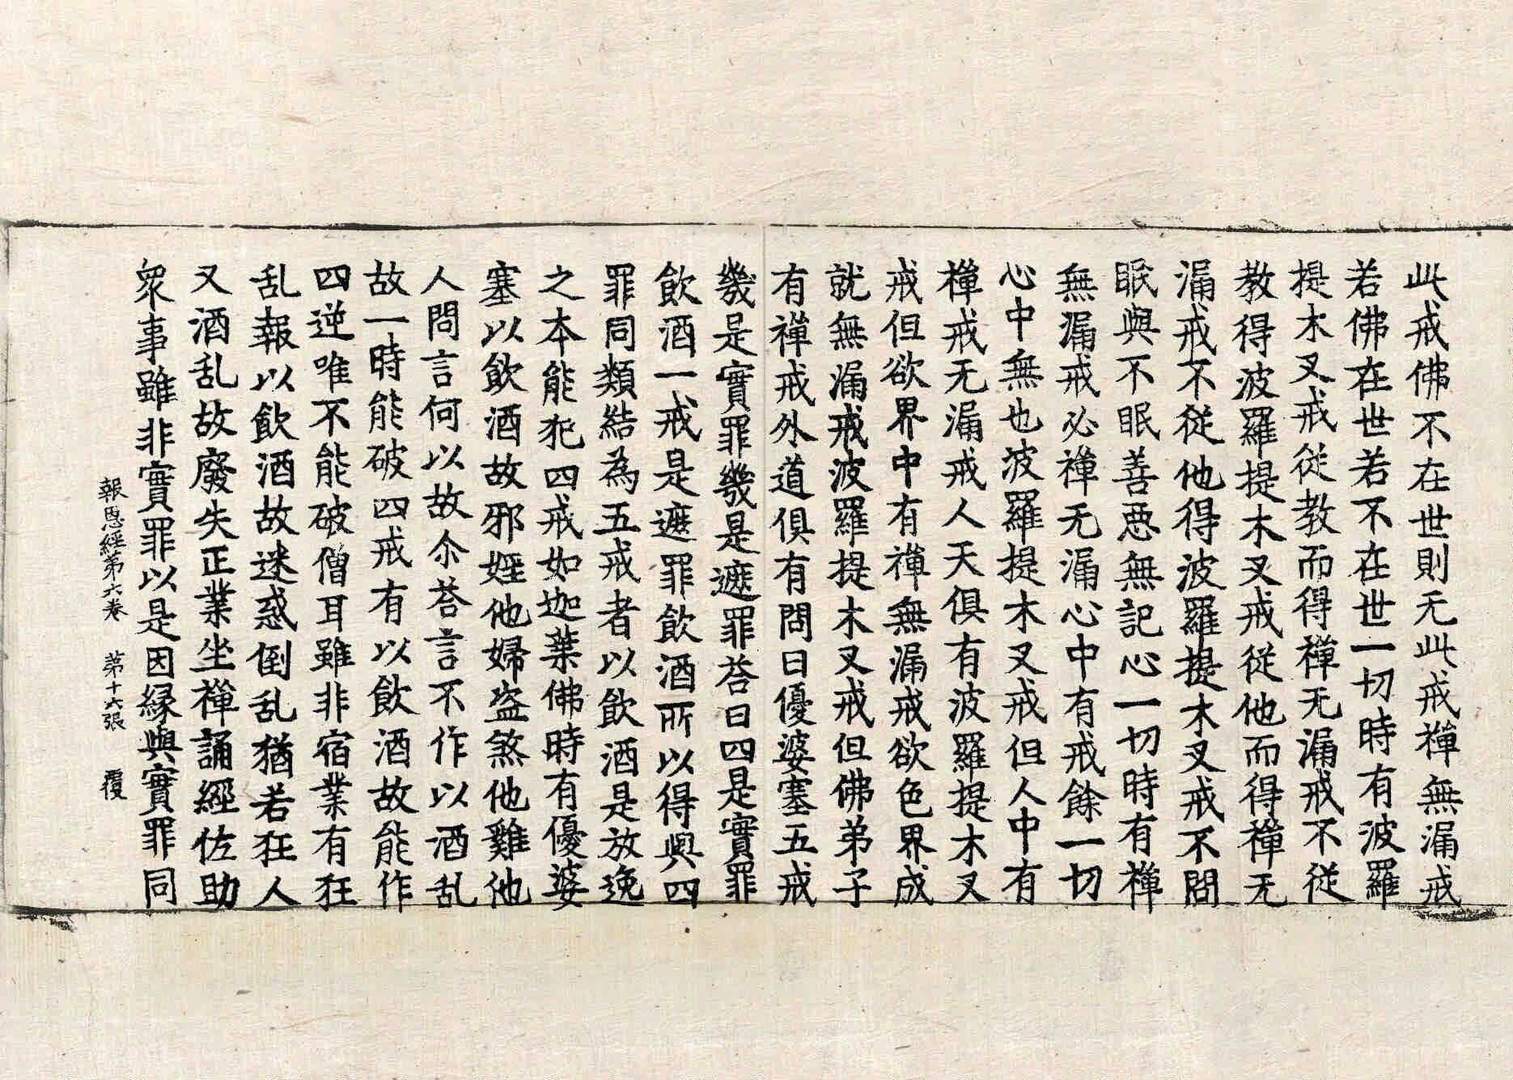 此戒佛不在世則无此戒禪無漏戒
若佛在世若不在世一切時有波羅
提木叉戒從教而得禪无漏戒不從
教得波羅提木叉戒從他而得禪无
漏戒不從他得波羅提木叉戒不問
眠與不眠善惡無記心一切時有禪
無漏戒必禪无漏心中有戒餘一切
心中無也波羅提木叉戒但人中有
禪戒无漏戒人天俱有波羅提木叉
戒但欲界中有禪無漏戒欲色界成
就無漏戒波羅提木叉戒但佛弟子
有禪戒外道俱有問曰優婆塞五戒
幾是實罪幾是遮罪荅曰四是實罪
飲酒一戒是遮罪飲酒所以得與四
罪同類結為五戒者以飲酒是放逸
之本能犯四戒如迦葉佛時有優婆
塞以飲酒故邪婬他婦盜煞他雞他
人問言何以故尒荅言不作以酒乱
故一時能破四戒有以飲酒故能作
四逆唯不能破僧耳雖非宿業有狂
乱報以飲酒故迷惑倒乱猶若狂人
又酒乱故廢失正業坐禪誦經佐助
衆事雖非實罪以是因緣與實罪同
報恩經第六卷 第十六張 覆